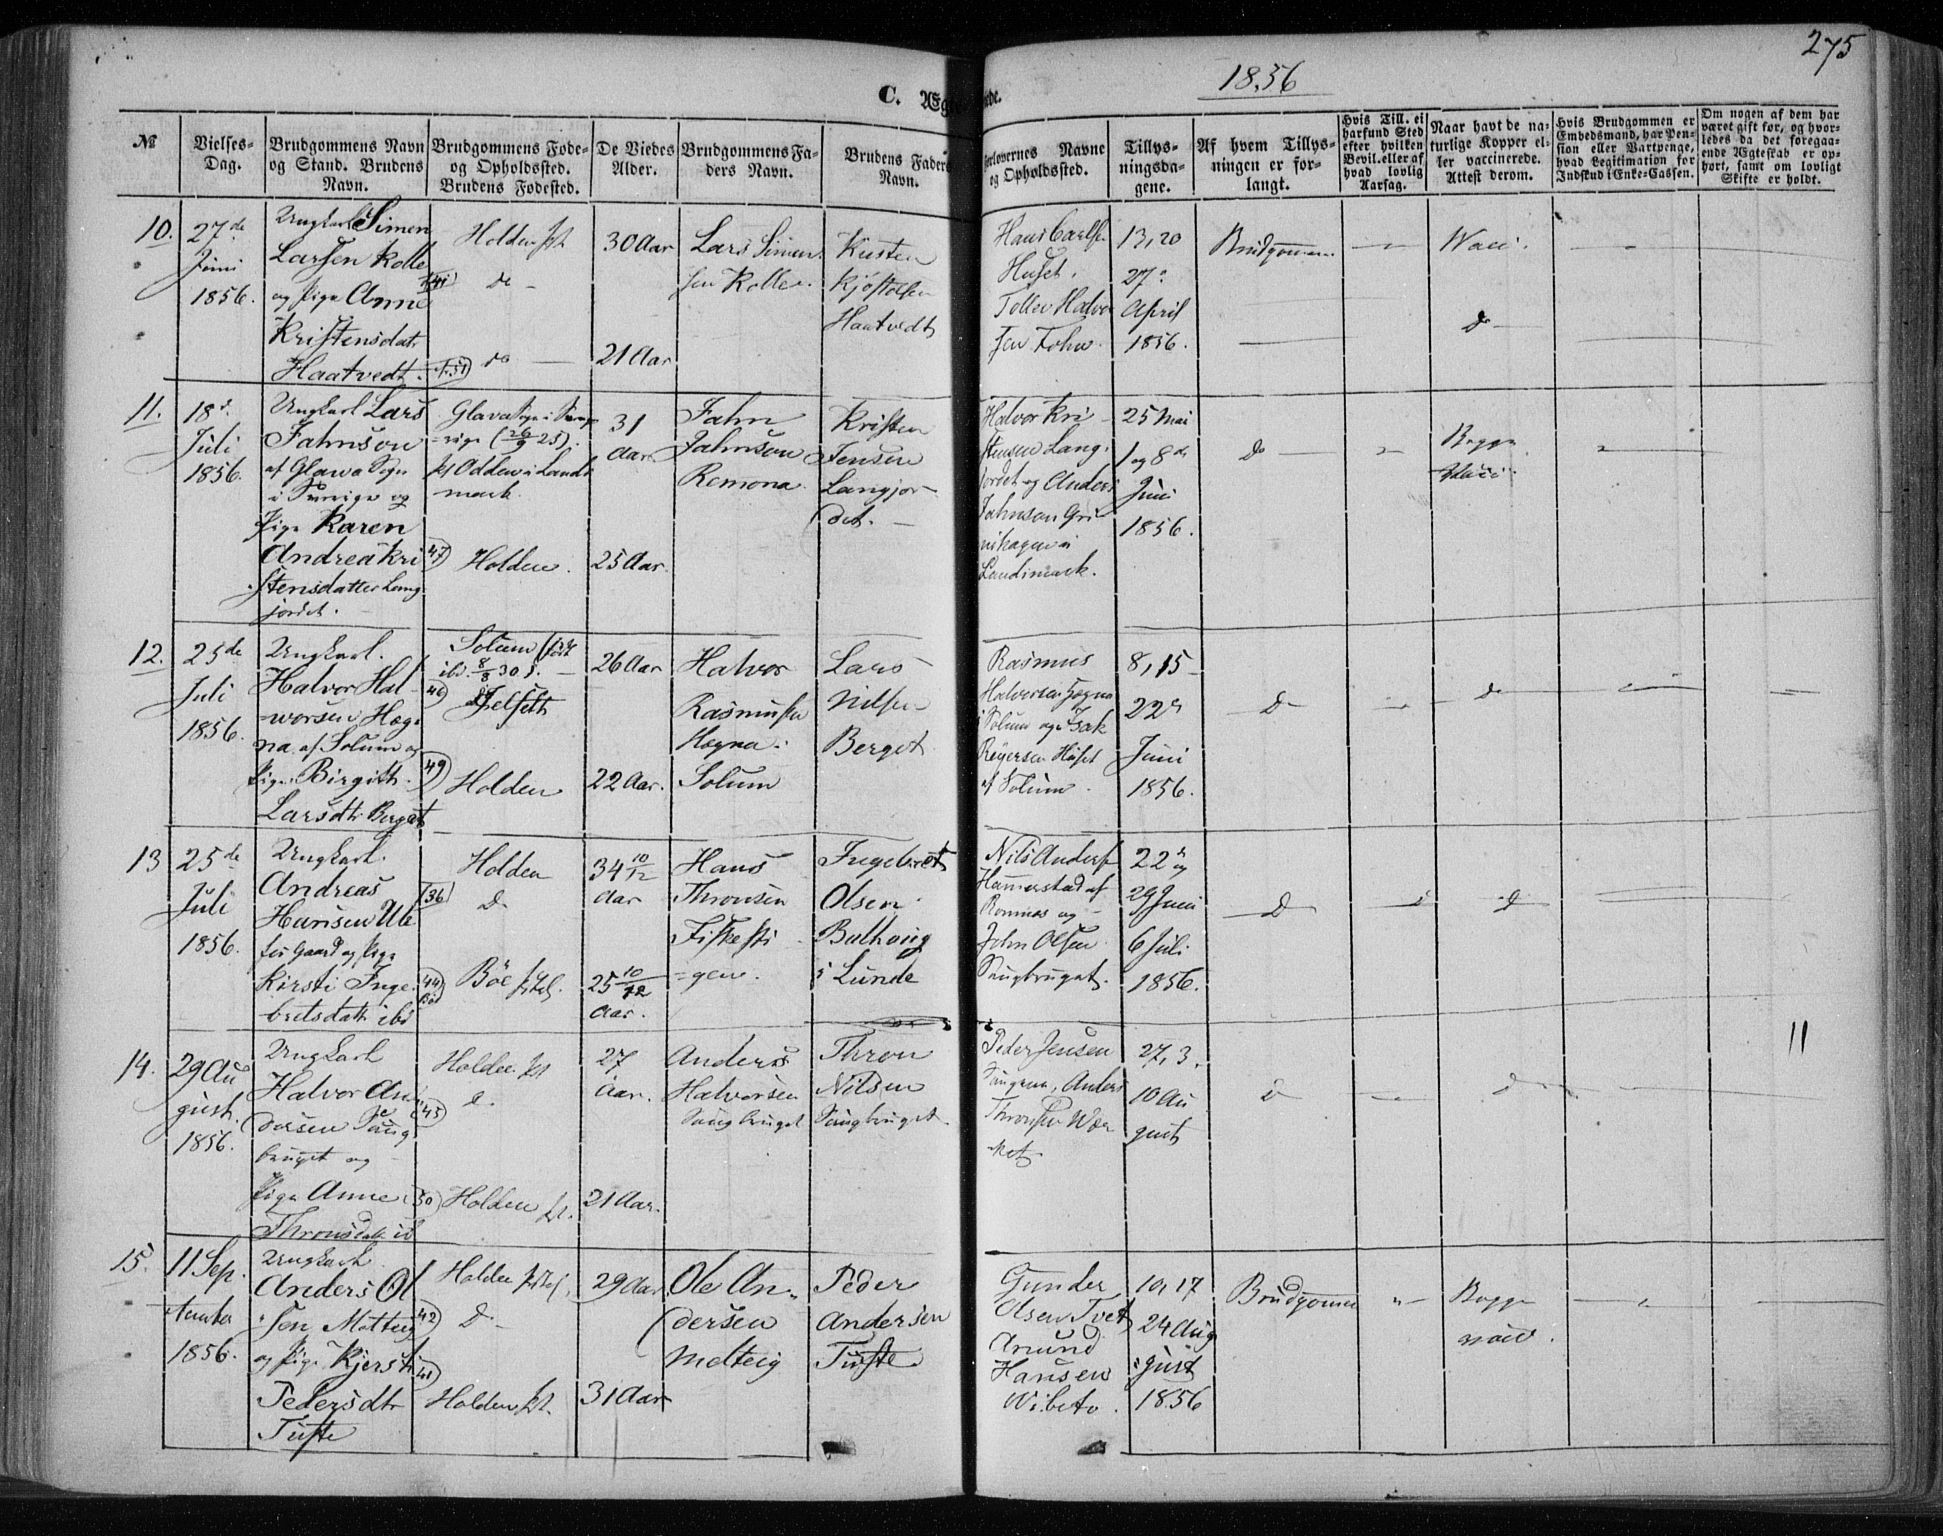 275
1856
C. Ægte
ede.
№
Vielses-
Dag.
Brudgommens Navn
og Stand. Brudens
Navn.
Brudgommens Føde-
og Opholdssted.
Brudens Fødested.
De Viedes
Alder.
Brudgommens Fa-
ders Navn.
Brudens Faders
Navn.
Forlovernes Navne
og Opholdssted.
Tillys-
ningsda-
gene.
Af hvem Tillys-
ningen er for-
langt.
Hvis Till. ei
harfund Sted
efter hvilken
Bevil. eller af
hvad lovlig
Aarsag.
Naar havt de na-
turlige Kopper el-
ler vaccinerede.
Attest derom.
Hvis Brudgommen er
Embedsmand, har Pen-
sion eller Vartpenge,
hvad Legitimation for
Indskud i Enke-Cassen.
Om nogen af dem har
været gift før, og hvor-
ledes da det foregaa-
ende Ægteskab er op-
hørt, samt om lovligt
Skifte er holdt.
10.
27de
Juni
1856.
Ungkarl Simen
Larsen Kolle
og Pige Anne
Kristensdatr
Haatvedt.
Holden
do
do
30 Aar
21 Aar
Lars Simen-
sen Kolle.
Kristen
Kjøstolsen
Haatvedt
Hans Carlsen
Huset.
Tollev Halvor
sen
13, 20
27
April
1856.
Brudgommen
Vacc.
do
11.
18d.
Juli
1856.
Ungkarl Lars
Jahnson
af Glawa Sogn
i Sverige og
Pige Karen
Andrea Kri
stensdatter Lang
jordet.
47
Glava Sogn i Sve
rige (26/9 25).
Holden.
31
Aar
25 Aar.
Jahn
Jahnson
Remona.
Kristen
Jensen
Langjor-
det.
Halvor Kri-
stensen Lang
jordet og Anders
Jahnson
25 Mai
1 og 8de
Juni
1856.
do
Begge
Vacc.
12.
25de
Juli
1856.
Ungkarl.
Halvor Hal-
vorsen Hæg
na af Solum og
Pige Birgith
Larsdtr Berget
46
49
Solum født
ibd. 8/8 30
Holden
26 Aar
22 Aar.
Halvor
Rasmussen
Hægna.
Solum
Lars
Nilsen
Berget
Rasmus
Halvorsen Hægna
i Solum og Isak
Reiersen Huset
af Solum.
8, 15
22d
Juni
1856.
do
do
13
25de
Juli
1856.
Ungkarl.
Andreas
Hansen Ule
fos Gaard og Pige
Kirsti Inge
bretsdatr ibd
36
44
Bøe
Holden
do
Bøe
34 10/12
Aar
25 10/12
Aar.
Hans
Thronsen
Fiskesti
gen.
Ingebret
Olsen
Bolhaug
i Lunde
Nils Anders
Hammerstad af
Romnæs og
John Olsen
Saugbruget.
22d og
29 Juni
6 Juli
1856.
do
do
14.
29 Au
gust.
1856.
Ungkarl
Halvor An
dersen Saug
bruget og
Pige Anne
Thronsdatr ib
45
50
Holden
do
Holden
27
Aar.
21 Aar.
Anders
Halvorsen
Saugbruget
Thron
Nilsen
Saugbruget.
Peder Jensen
Anders
Thronsen
27, 3.
10 Au
gust
do
do
11
15.
11 Sep.
tember
1856.
Ungkarl
Anders Ol
sen Melteig
og Pige Kjersti
Pedersdtr
Tufte
42
41
Holden
do
Holden
29 Aar
31 Aar
Ole An-
dersen
Melteig
Peder
Andersen
Tufte
Gunder
Olsen Tvet
Amund
Hansen
Wibeto.
10, 17
24 Aug
gust
1856
Brudgommen
Begge
vacc.